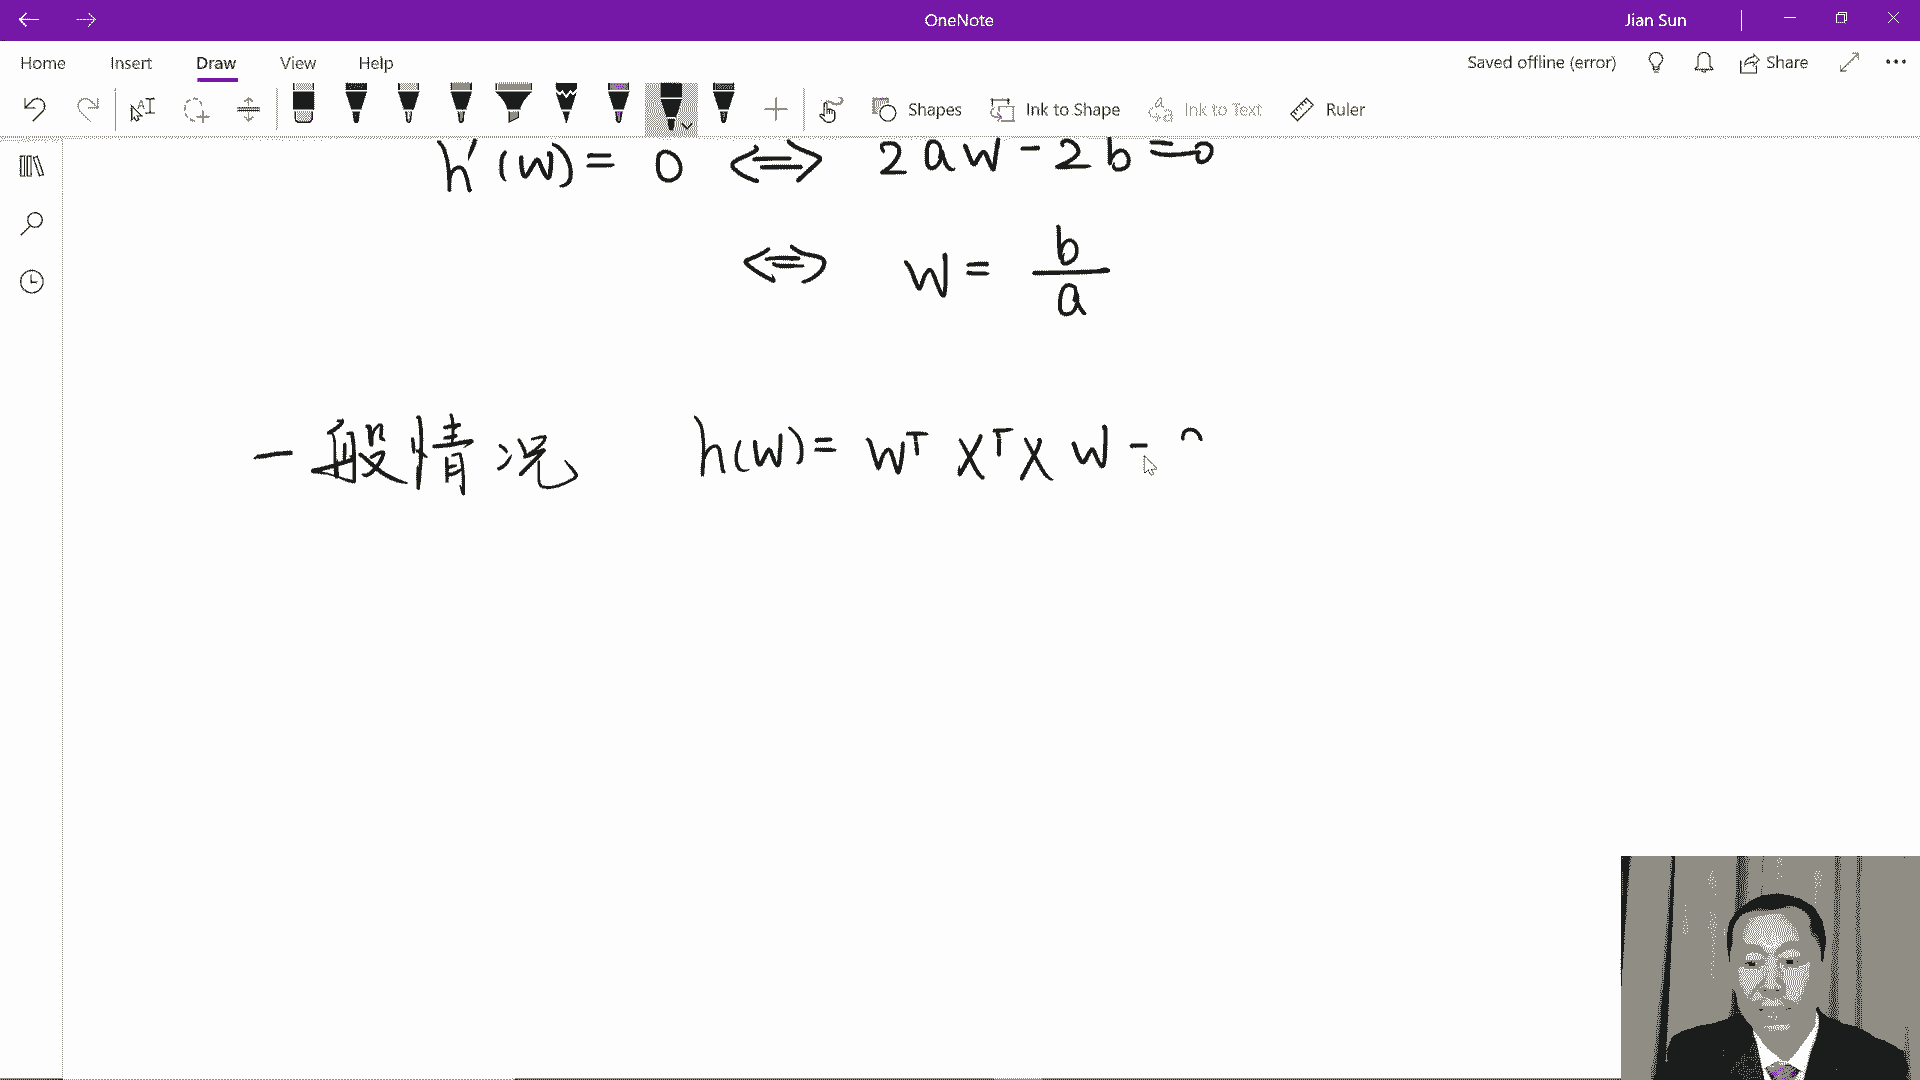 OneNote
Jian Sun
Home Insert Draw View Help
Saved offline (error)
Share
Shapes
Ink to Shape
Ink to Text
Ruler
h'(w) = 0 ⟺ 2aw - 2b = 0
⟺ w = b/a
一般情况 h(w) = wᵀ Xᵀ X w -